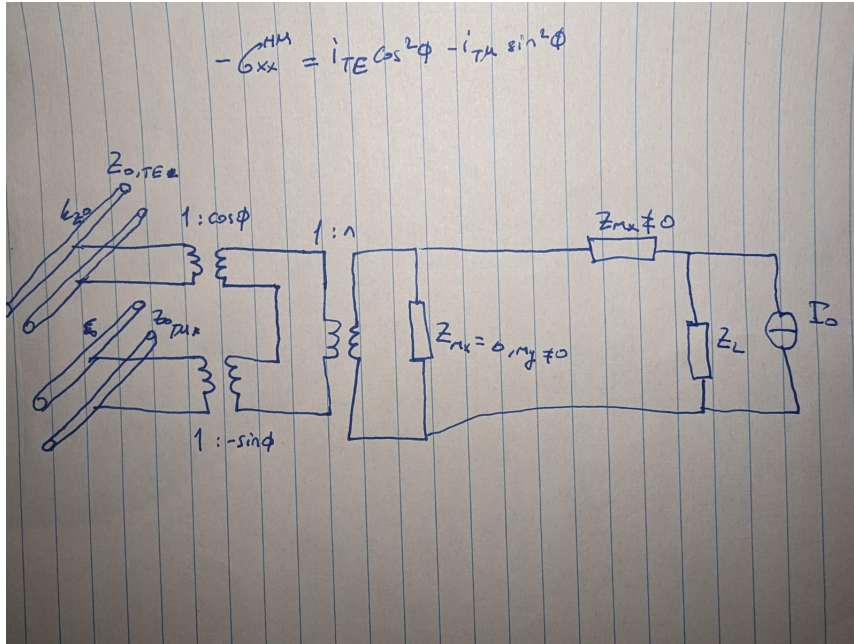 -G_xx^HM = i_TE cos²ϕ - i_TM sin²ϕ
Z_0,TE
k_z0
1 : cosϕ
1 : n
Z_mx≠0
I_0
Z_mx=0,my≠0
Z_L
Z_0 TM
1 : -sinϕ